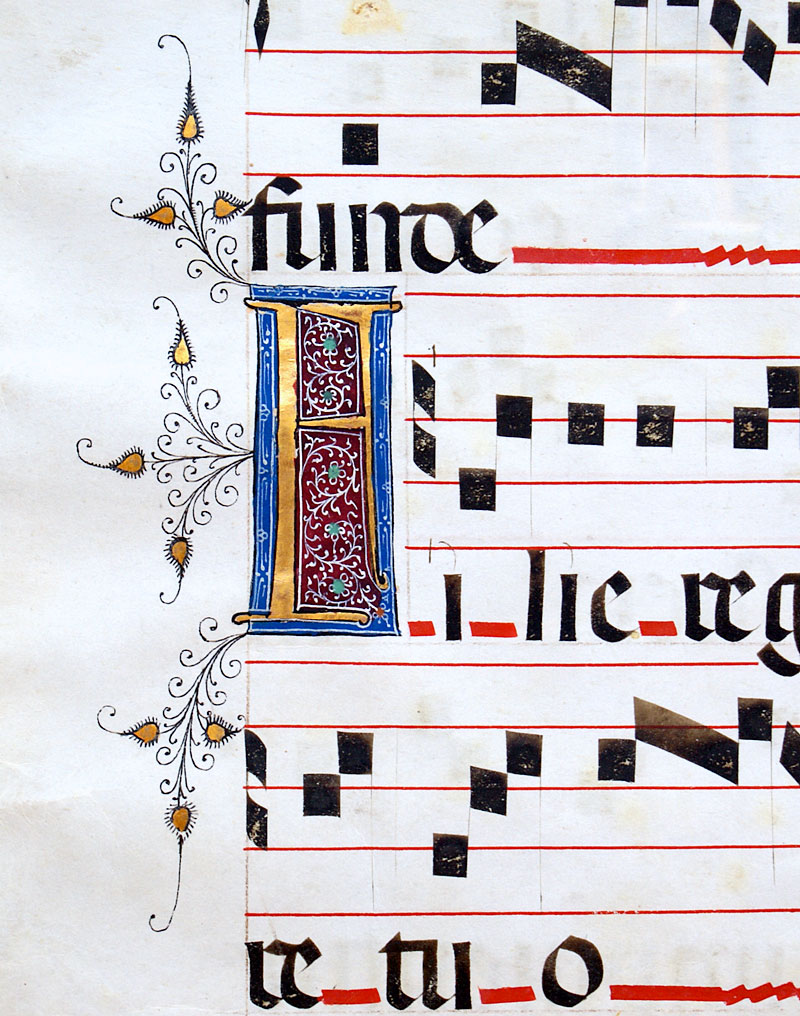 funde
Fi lie reg
re tu o